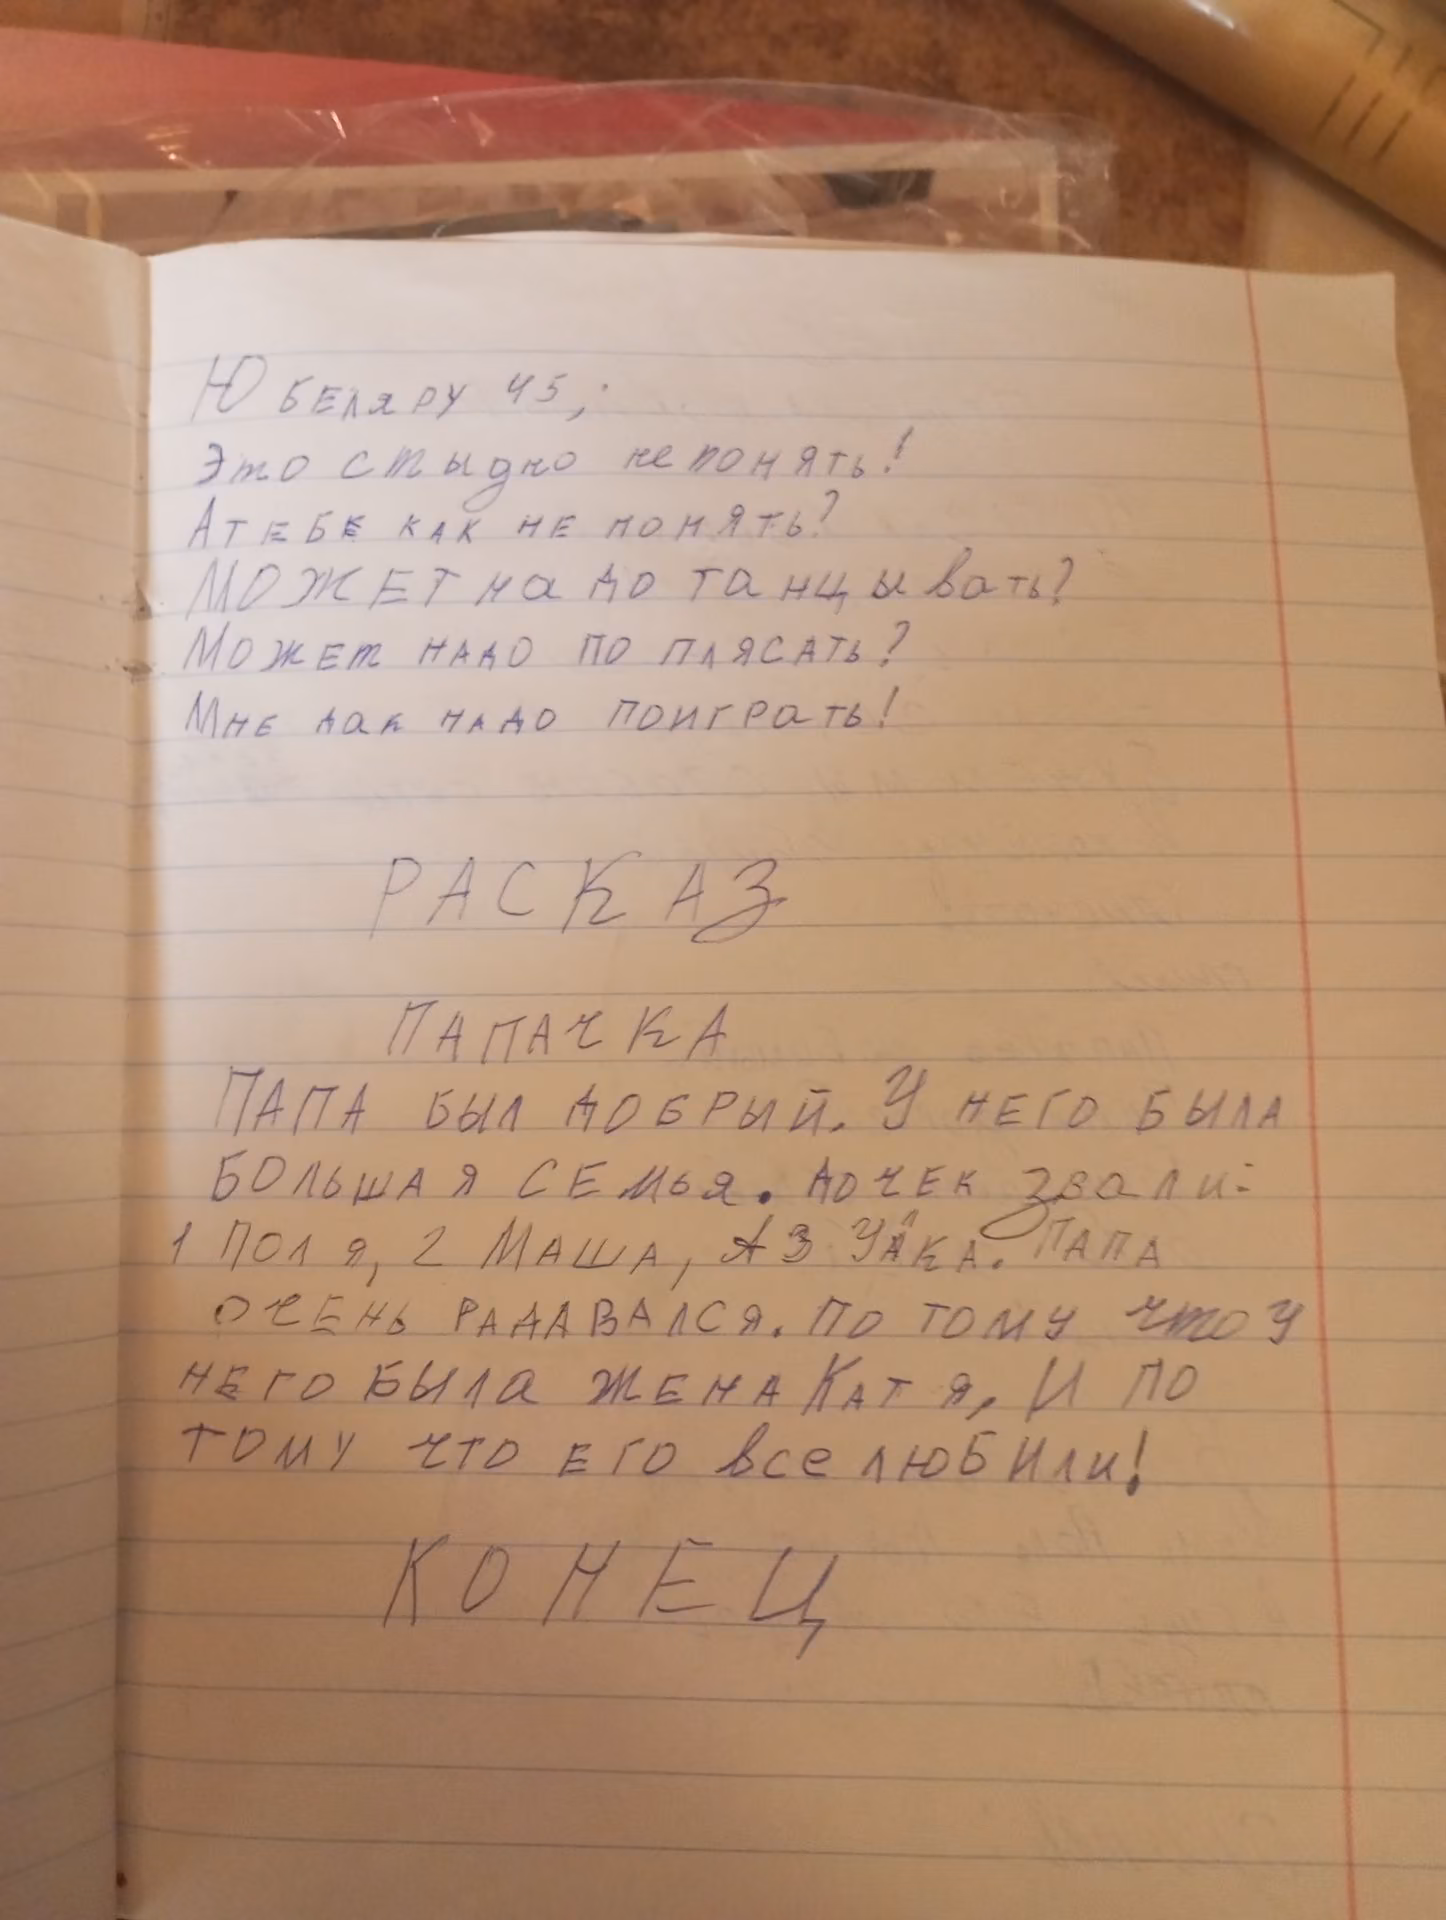 Юбеляру 45,
Это стыдно непонять!
А тебе как не понять?
Может надо танцывать?
Может надо по плясать?
Мне дак надо поиграть!
РАСКАЗ
ПАПАЧКА
ПАПА БЫЛ ДОБРЫЙ. У НЕГО БЫЛА
БОЛЬШАЯ СЕМЬЯ. ДОЧЕК звали:
1 ПОЛЯ, 2 МАША, А 3 ПАПА
ОЧЕНЬ РАДАВАЛСЯ. ПО ТОМУ что У
НЕГО БЫЛа ЖЕНА КАТЯ, И ПО
ТОМУ ЧТО ЕГО все ЛЮБИЛИ!
КОНЕЦ